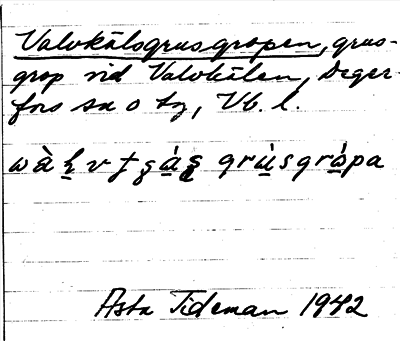 Valvkälsgrusgropen, grus-
grop vid Valvkälen, Deger-
fors sn o tg, Vb. l.
grùsgrȯ́pa
Asta Tideman 1942